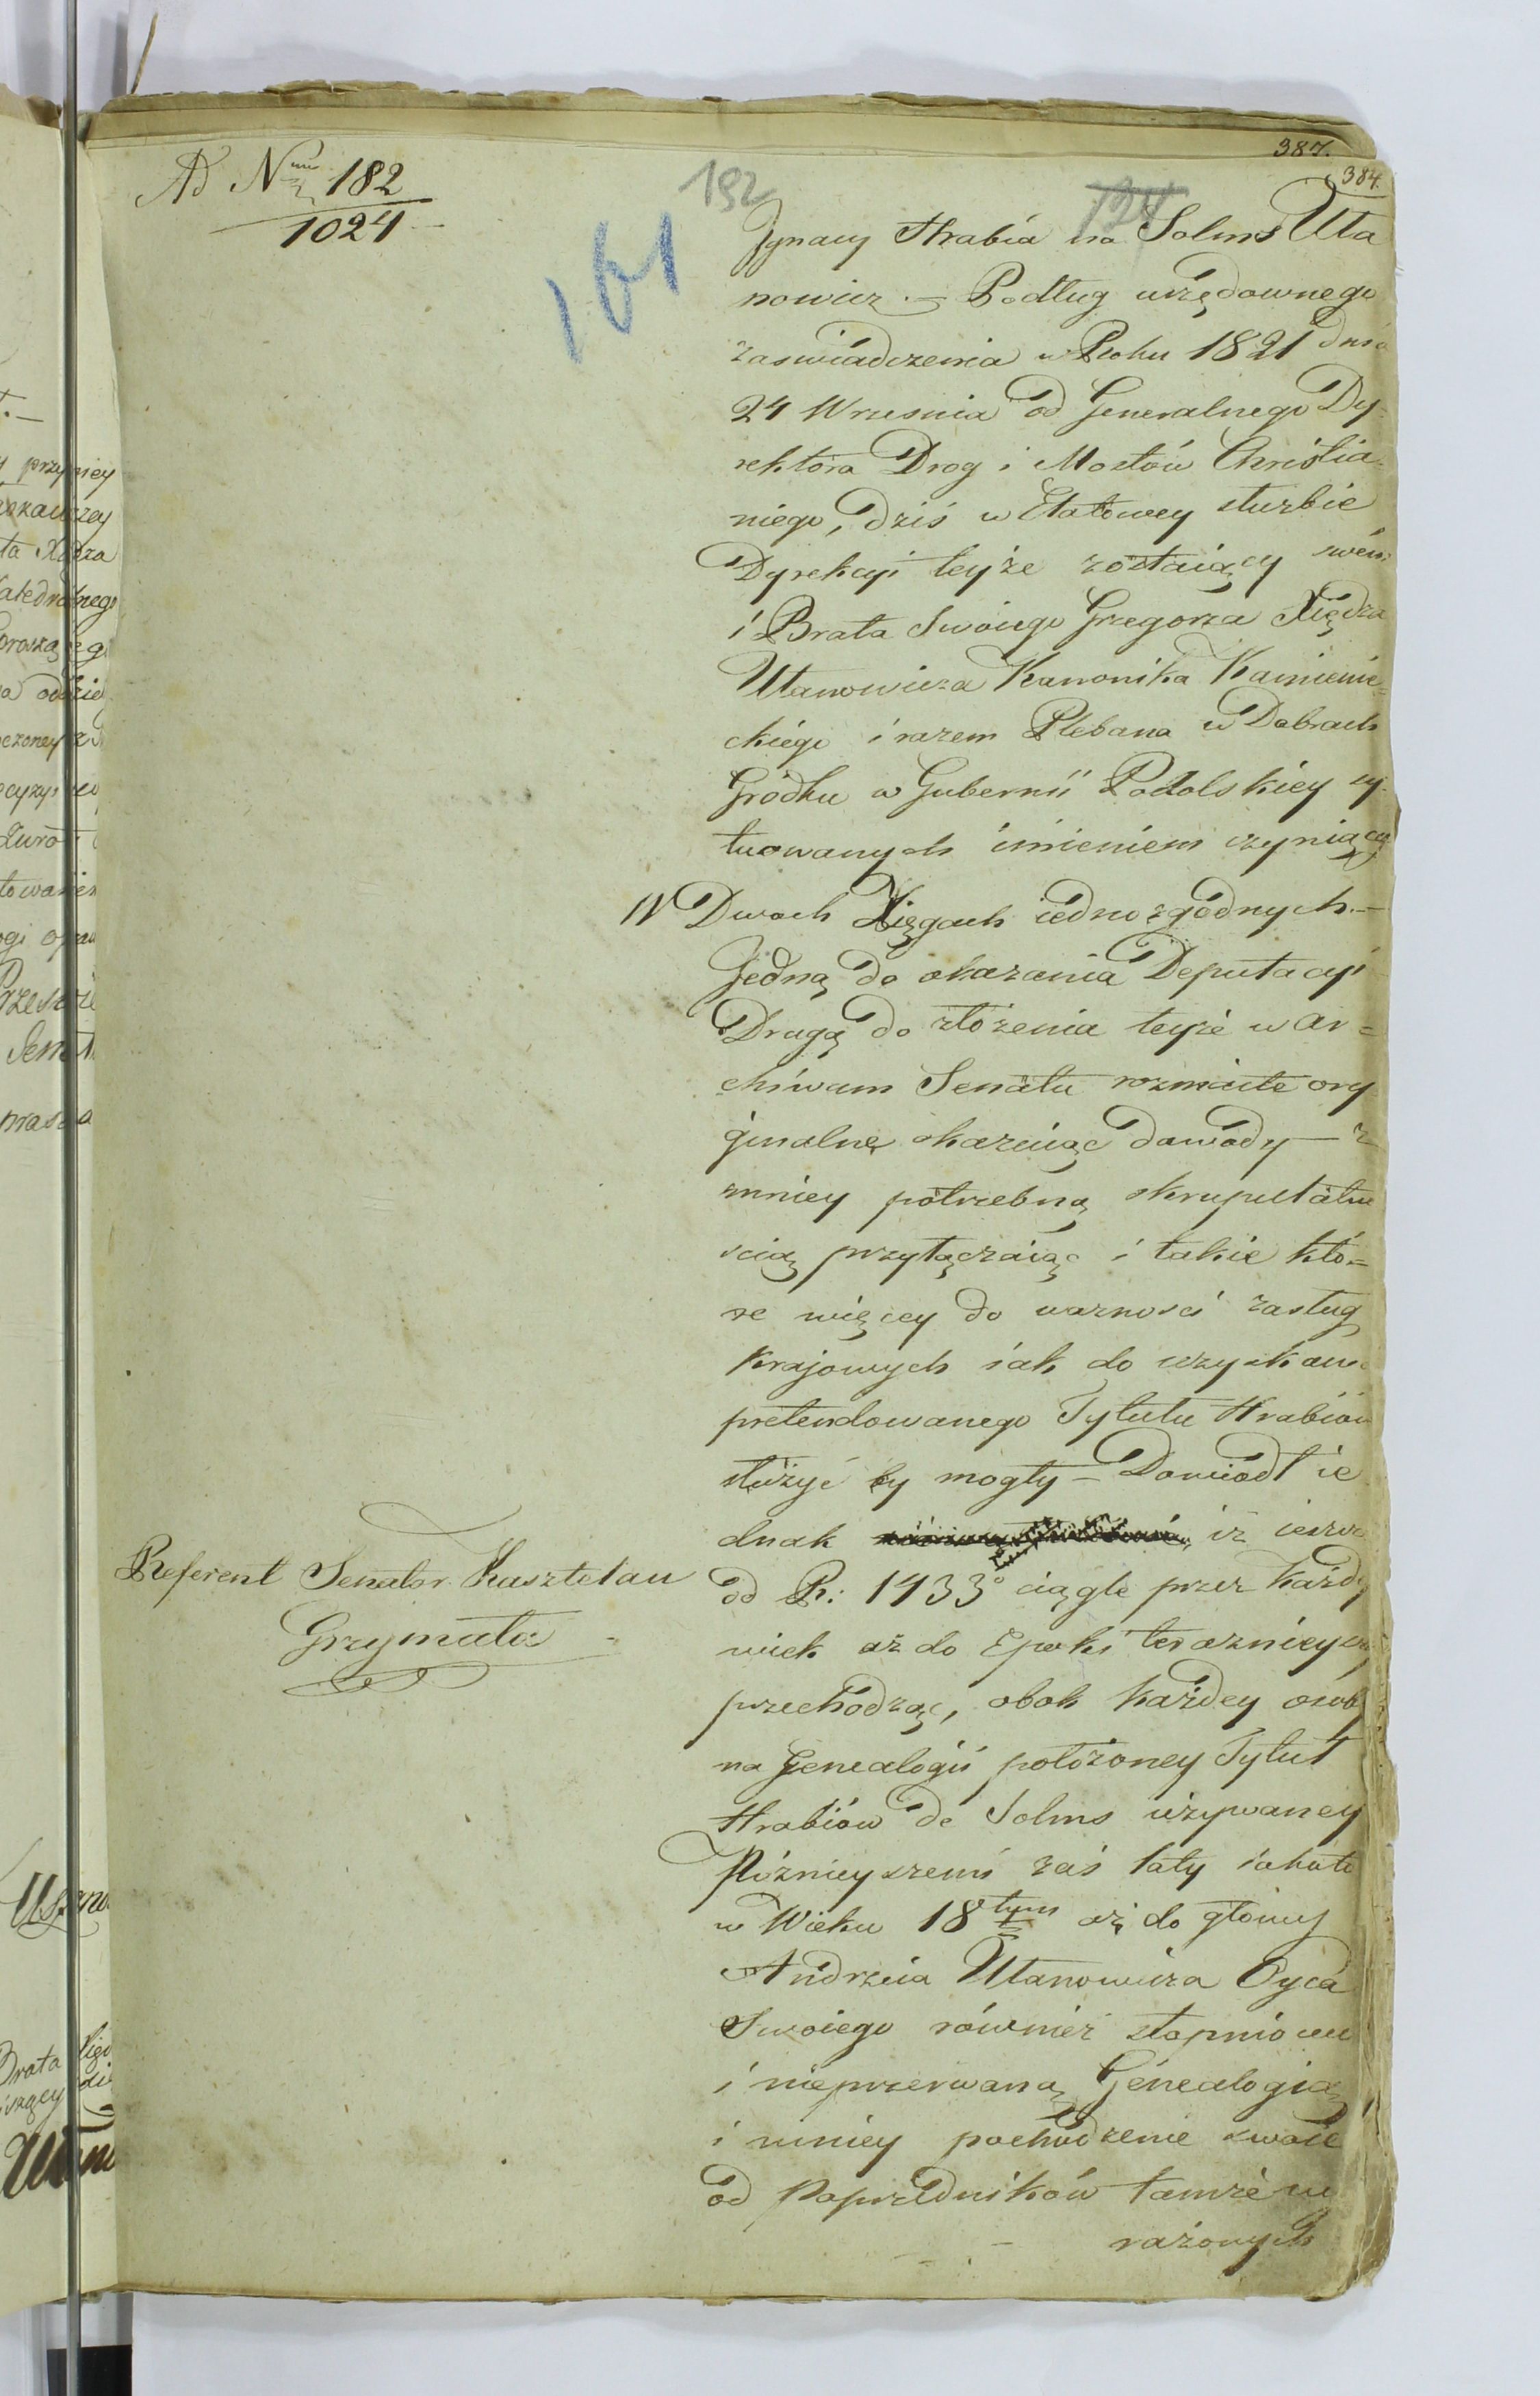 387.
384.
Ad N<sup>rum</sup> 182
1024
192
124
161
Ignacy Hrabia na Solms Uła
nowicz. — Podług urzędownego
zaswiadczenia w Roku 1821 dnia
24 Wrzesnia od Generalnego Dy=
rektora Drog i Mostów Christia
niego, dziś w Etatowey służbie
Dyrekcyi teyże zostaiący swém
i Brata Swoiego Grzegorza Xiędza
Ułanowicza Kanonika Kamienie=
ckiego i razem Plebana w Dobrach
Gródku w Gubernii Podolskiey sy=
tuowanych imieniem czyniący
W Dwoch Xięgach iednozgodnych. —
Jedną do okazania Deputacyi
Drugą do złożenia teyże w Ar=
chiwum Senatu rozmaite ory
ginalne okazuiąc dowody — z
mniey potrzebną skrupulatno
scią przyłączaiąc i takie któ=
re więcey do ważnosci zasług
Krajowych iak do uzyskania
pretendowanego Tytułu Hrabiów
służyć by mogły — Dowiódł ie
dnak iż ieszcze
od R: 1433° ciągle przez każdy
wiek aż do Epoki terazniey szey
przechodząc, obok każdey osoby
na Genealogii położoney Tytuł
Hrabiów de Solms używaney
Pózniey szemi zaś laty iakoto
w Wieku 18<sup>tym</sup> aż do głowy
Andrzeia Ułanowicza Oyca
Swoiego również stopniową
i nieprzerwaną Genealogią
i mniey pochodzenie swoie
od Poprzedników tamże wy
rażonych
Referent Senator Kasztelan
Grzymała